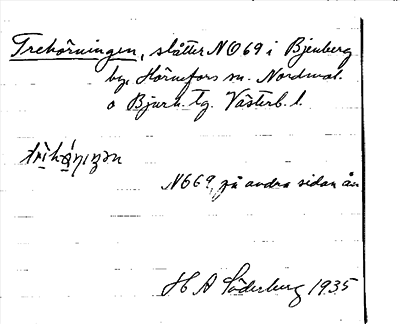 Trehörningen, slåtter N069 i Bjenberg
by, Hörnefors sn. Nordmal.
o Bjurh. tg. Västerb. l.
N669, på andra sidan ån
H A Söderberg 1935